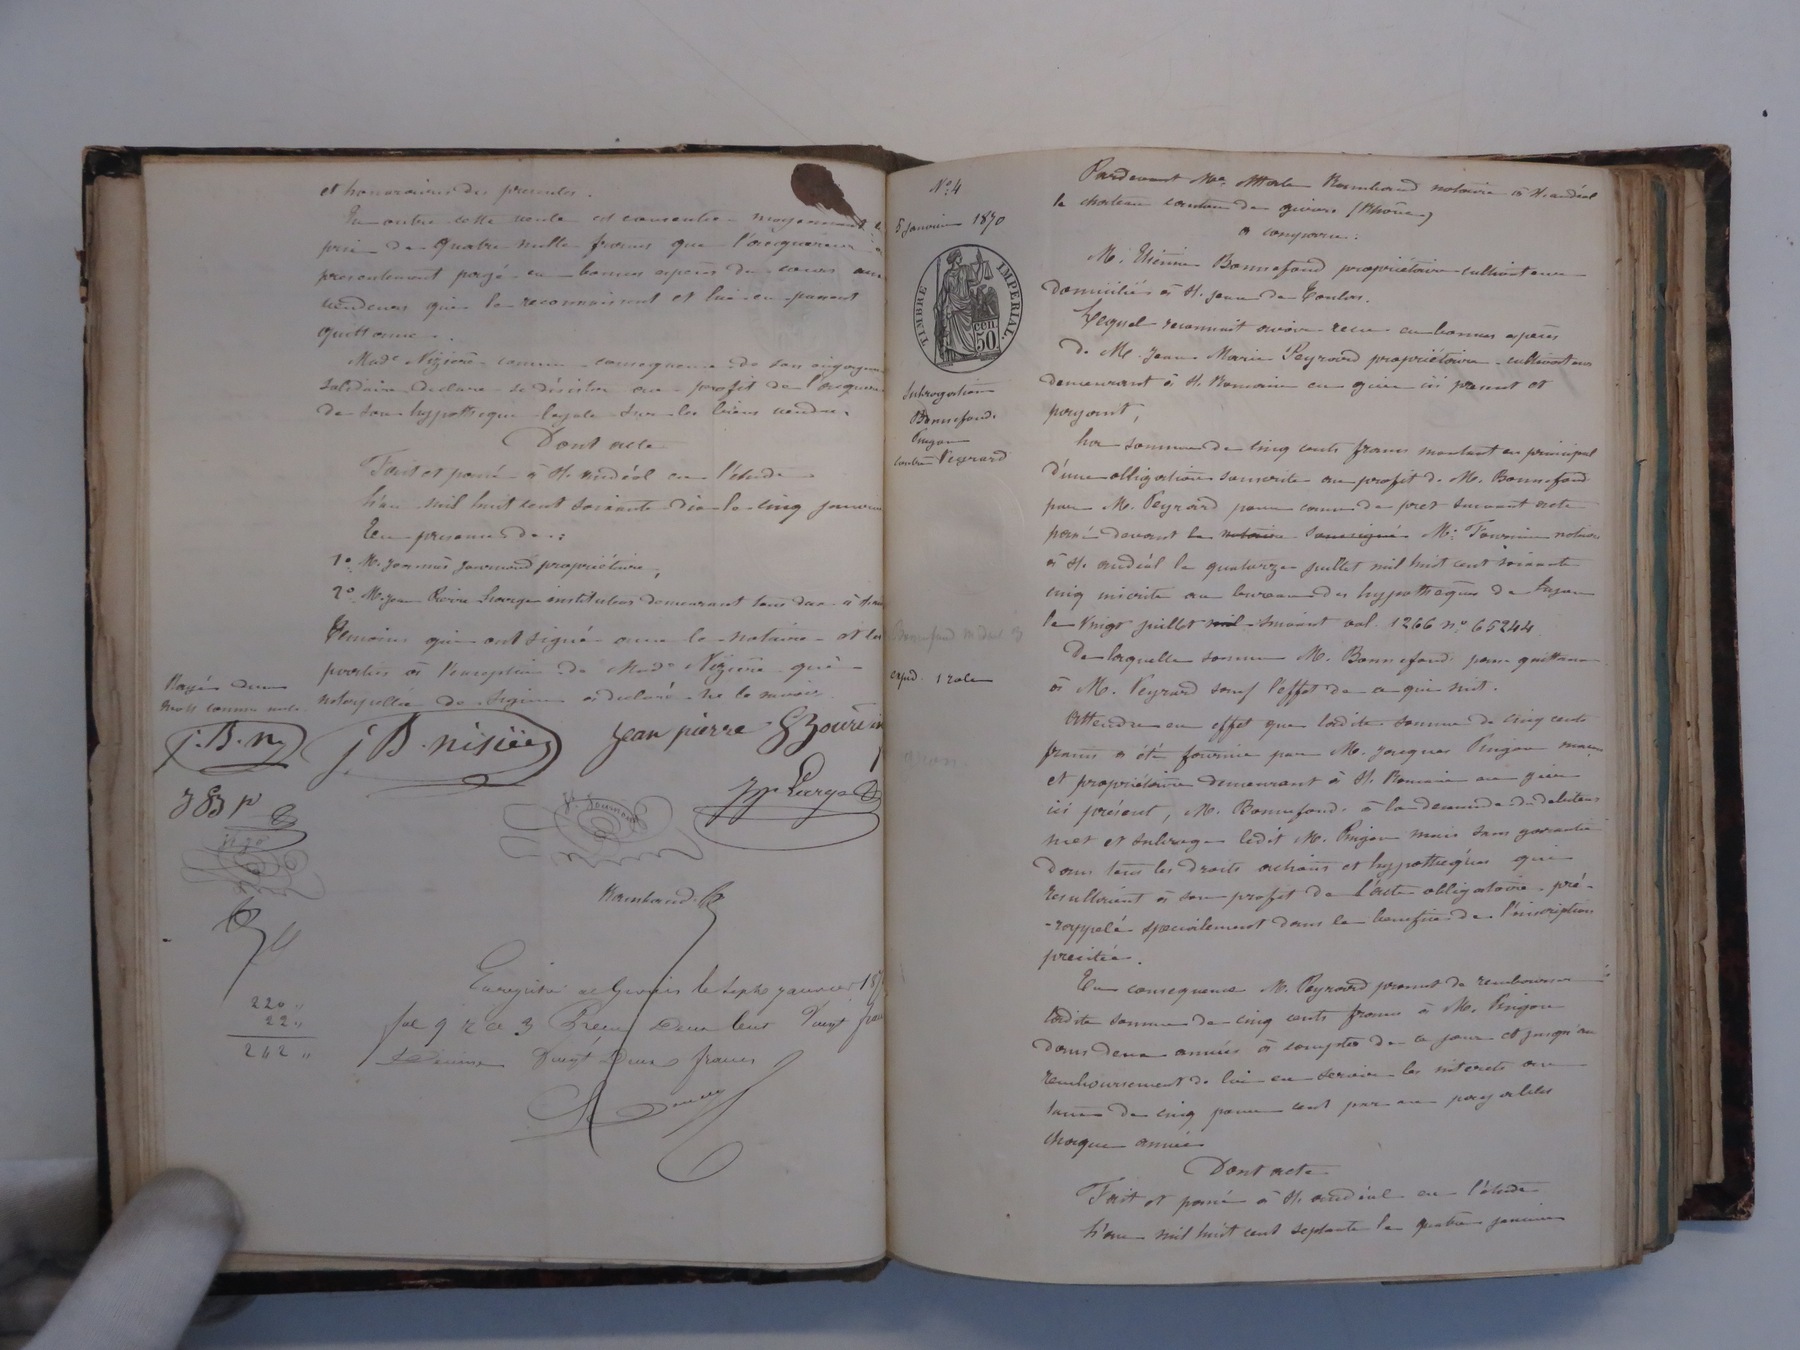 et honoraires des presentes.
En outre cette vente est consentie moyennant le
prix de quatre mille francs que l'acquereur a
presentement payé en bonnes espèces du cours aux
vendeurs qui le reconnaissent et lui en passent
quittance.
Made Nizière comme consequence de son engagement
solidaire declare se désister au profit de l'acquereur
de son hypothèque légale sur les biens vendus.
Dont acte
Fait et passé à St. andéol en l'étude
L'an mil huit cent soixante dix le cinq janvier
En presence de:
1o M. journoud propriétaire,
2o M. jean Pierre instituteur demeurant tous deux à St
Témoins qui ont signé avec le notaire et les
parties à l'exception de Made Nizière qui
interpellée de signer a declaré ne le savoir.
Rayés deux
mots comme nuls.
j.B.n j B. nisiée jean pierre
J B P
Raimbaud
Enregistré à Givors le sept janvier 187
fol 9 r c 3 Reçu deux cent vingt francs
Décime vingt deux francs
220 "
22 "
242 "
No 4
5 janvier 1870
TIMBRE IMPERIAL.
50 cen
Subrogation
Bonnefond.
Pinjon
contre Peyrard
expd. 1 role
Pardevant Me Raimbaud notaire à St andéol
le chateau canton de givors (Rhône)
a comparu:
M. Etienne Bonnefond propriétaire cultivateur
domicilié à St. jean de Toulas.
Lequel reconnait avoir reçu en bonnes espèces
de M. Jean Marie Peyrard propriétaire cultivateur
demeurant à St. Romain en gier ici present et
payant,
La somme de cinq cents francs montant en principal
d'une obligation souscrite au profit de M. Bonnefond
par M. Peyrard pour cause de pret suivant acte
passé devant le notaire soussigné Me notaire
à St. andéol le quatorze juillet mil huit cent soixante
cinq inscrite au bureau des hypothèques de Lyon
le vingt juillet mil suivant vol. 1266 no 65244.
De laquelle somme M. Bonnefond passe quittance
à M. Peyrard sauf l'effet de ce qui suit.
Attendu en effet que ladite somme de cinq cents
francs a été fournie par M. Jacques Pinjon
et propriétaire demeurant à St. Romain en gier
ici présent, M. Bonnefond à la demande du debiteur
met et subroge ledit M. Pinjon mais sans garantie
dans tous les droits actions et hypothèques qui
résultaient à son profit de l'acte obligatoire pré-
-rappelé specialement dans le benefice de l'inscription
precitée.
En consequence M. Peyrard promet de rembourser
ladite somme de cinq cents francs à M. Pinjon
dans deux années à compter de ce jour et jusqu'au
remboursement de lui en servir les interets au
taux de cinq pour cent par an payables
chaque année
Dont acte
Fait et passé à St. andéol en l'étude
L'an mil huit cent septante le quatre janvier